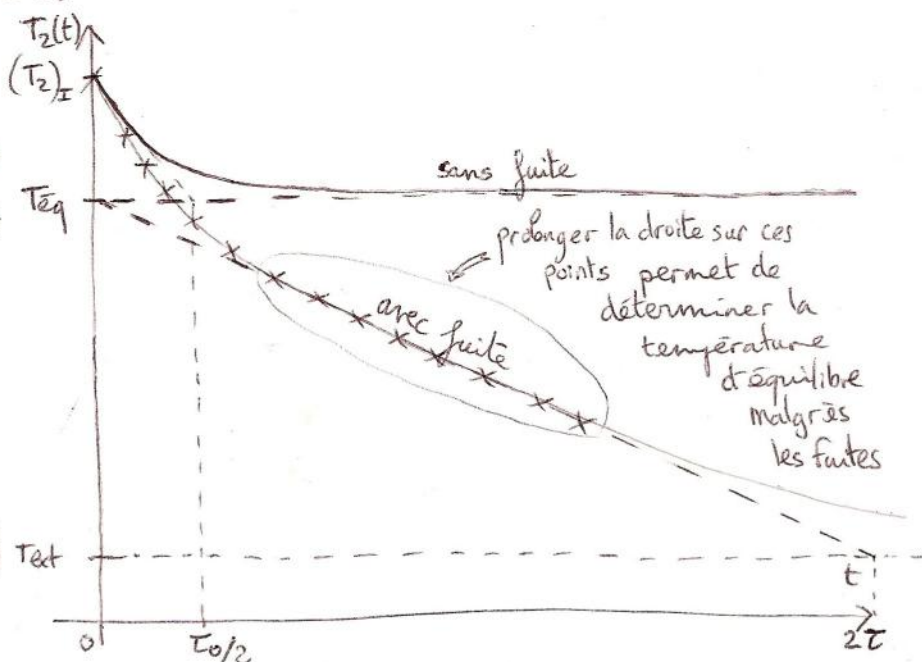 T₂(t)
(T₂)_I
sans fuite
Téq
prolonger la droite sur ces
points permet de
déterminer la
température
d'équilibre
malgrès
les fuites
avec fuite
Text
t
0
τ₀/2
2τ